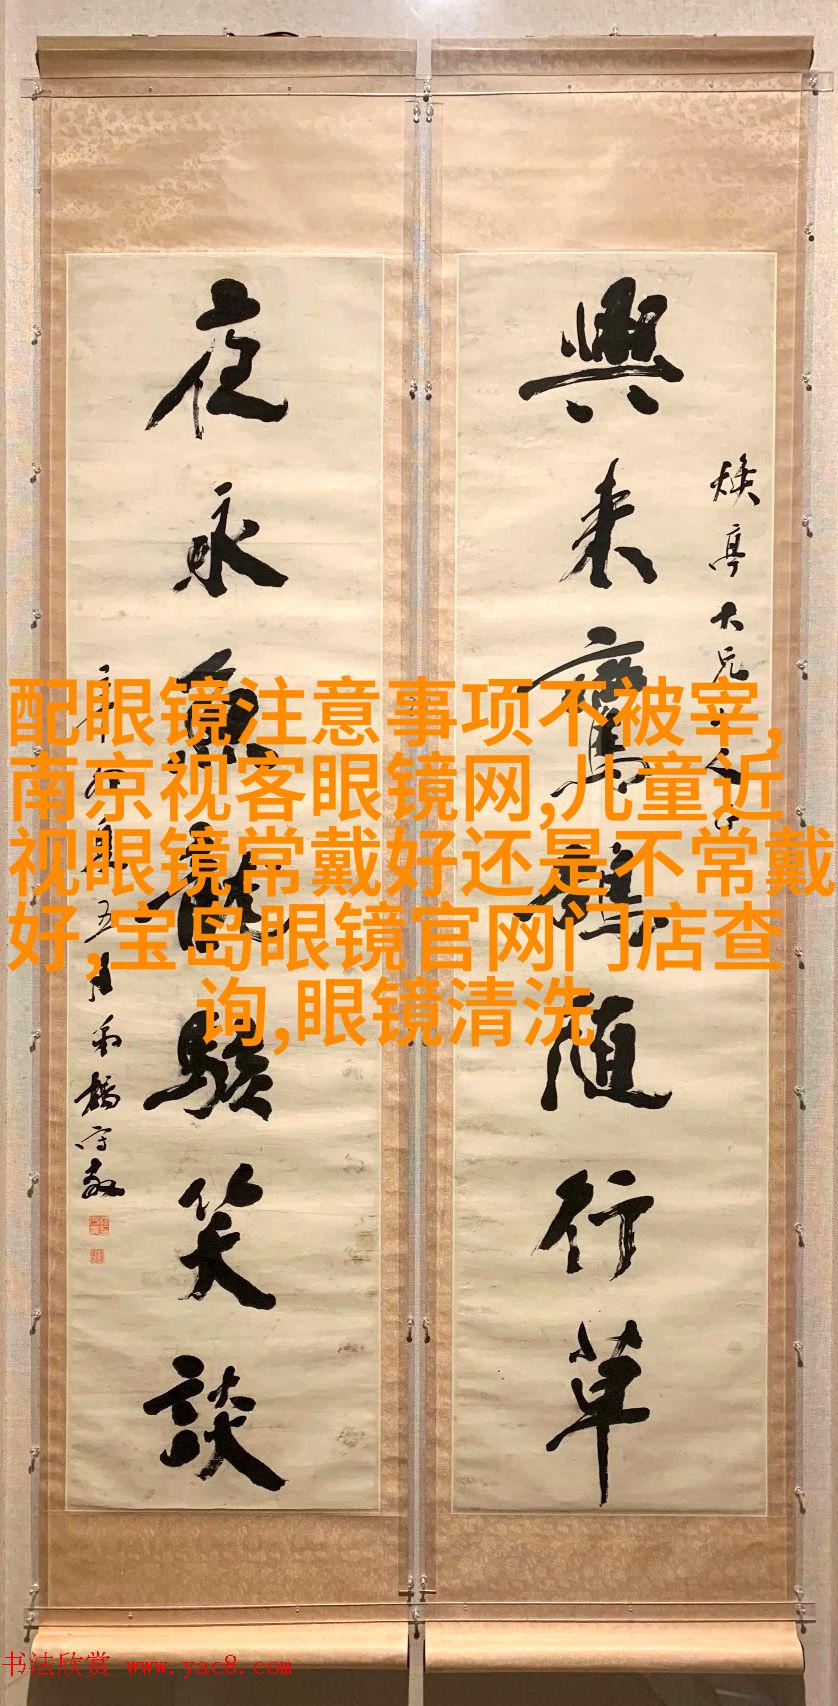 興来鸞鶴随行草
煥亭大兄
夜永魚龍駭笑談
楊守敬
配眼镜注意事项不被宰,
南京视客眼镜网,儿童近
视眼镜常戴好还是不常戴
好,宝岛眼镜官网门店查
询,眼镜清洗
书法欣赏 www.yac8.com